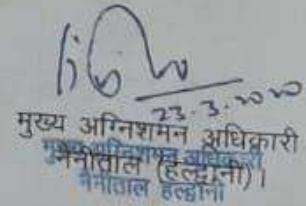 23.3.2020
मुख्य अग्निशमन अधिकारी
नैनीताल (हल्द्वानी)।
मुख्य अग्निशमन अधिकारी
नैनीताल हल्द्वानी